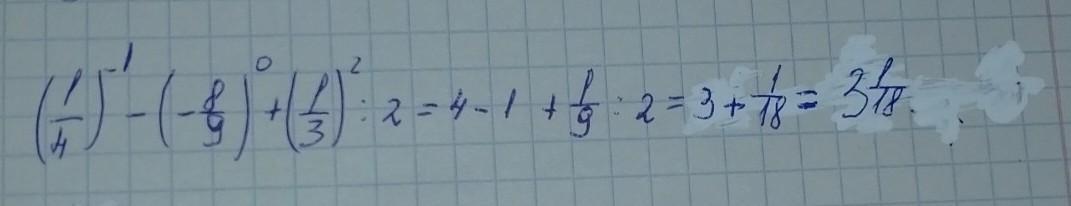 (1/4)^-1 - (-8/9)^0 + (1/3)^2 : 2 = 4 - 1 + 1/9 : 2 = 3 + 1/18 = 3 1/18.